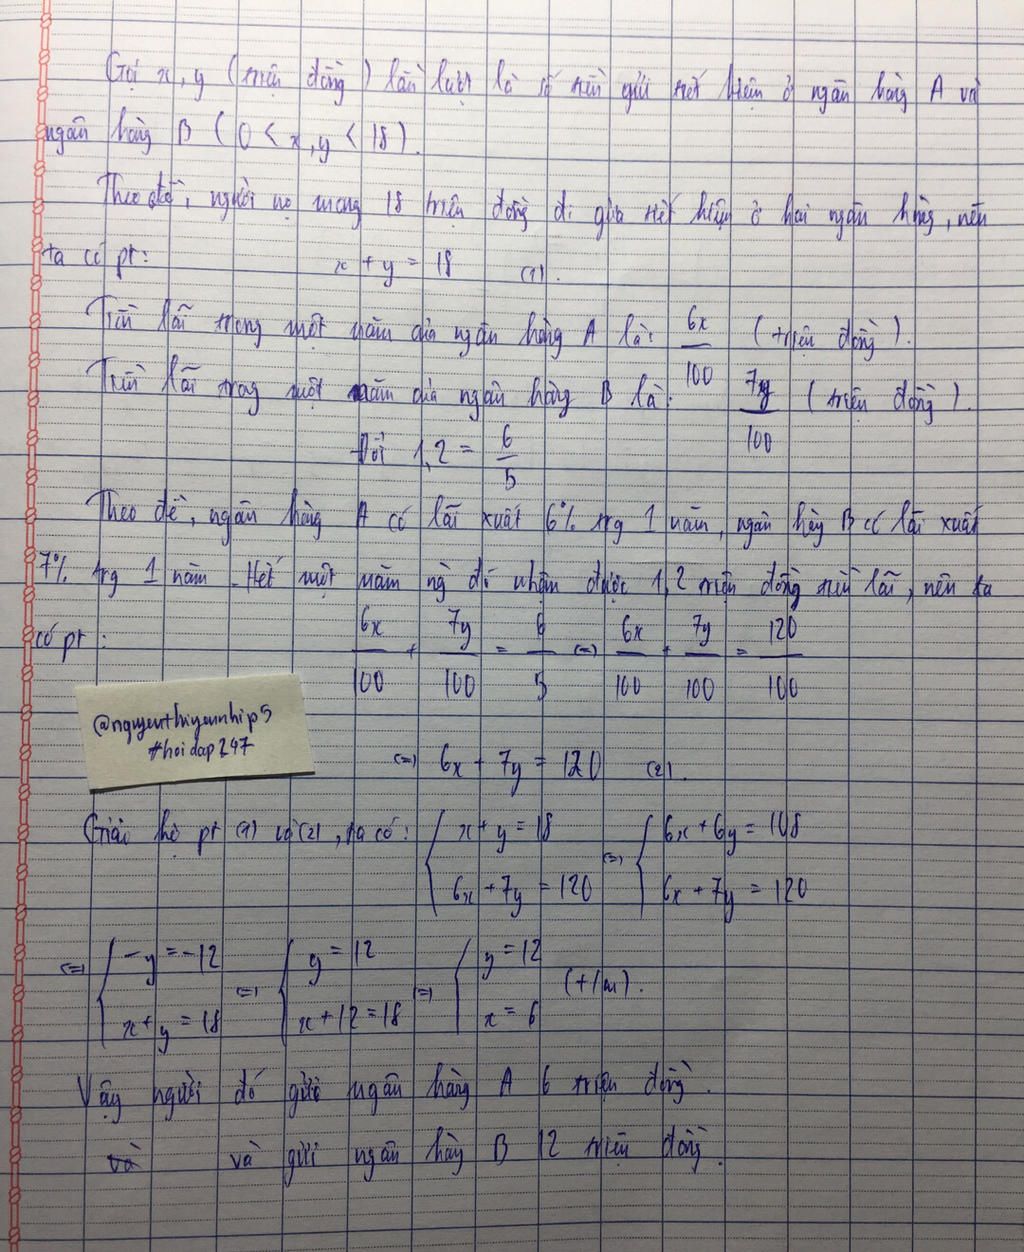 Gọi x, y (triệu đồng) lần lượt là số tiền gửi tiết kiệm ở ngân hàng A và
ngân hàng B (0 < x, y < 18).
Theo đề, người nọ mang 18 triệu đồng đi gửi tiết kiệm ở hai ngân hàng, nên
ta có pt:
x + y = 18 (1).
Tiền lãi trong một năm của ngân hàng A là: 6x/100 (triệu đồng).
Tiền lãi trong một năm của ngân hàng B là: 7y/100 (triệu đồng).
Đổi 1,2 = 6/5
Theo đề, ngân hàng A có lãi xuất 6% trg 1 năm, ngân hàng B có lãi xuất
7% trg 1 năm. Hết một năm ng đó nhận được 1,2 triệu đồng tiền lãi, nên ta
có pt:
6x/100 + 7y/100 = 6/5 (=) 6x/100 + 7y/100 = 120/100
@nguyenthiyennhip5
#hoidap247
(=) 6x + 7y = 120 (2).
Giải hệ pt (1) và (2), ta có: { x + y = 18 (=) { 6x + 6y = 108
6x + 7y = 120 6x + 7y = 120
(=) { -y = -12 (=) { y = 12 (=) { y = 12 (t/m).
x + y = 18 x + 12 = 18 x = 6
Vậy người đó gửi ngân hàng A 6 triệu đồng.
và gửi ngân hàng B 12 triệu đồng.